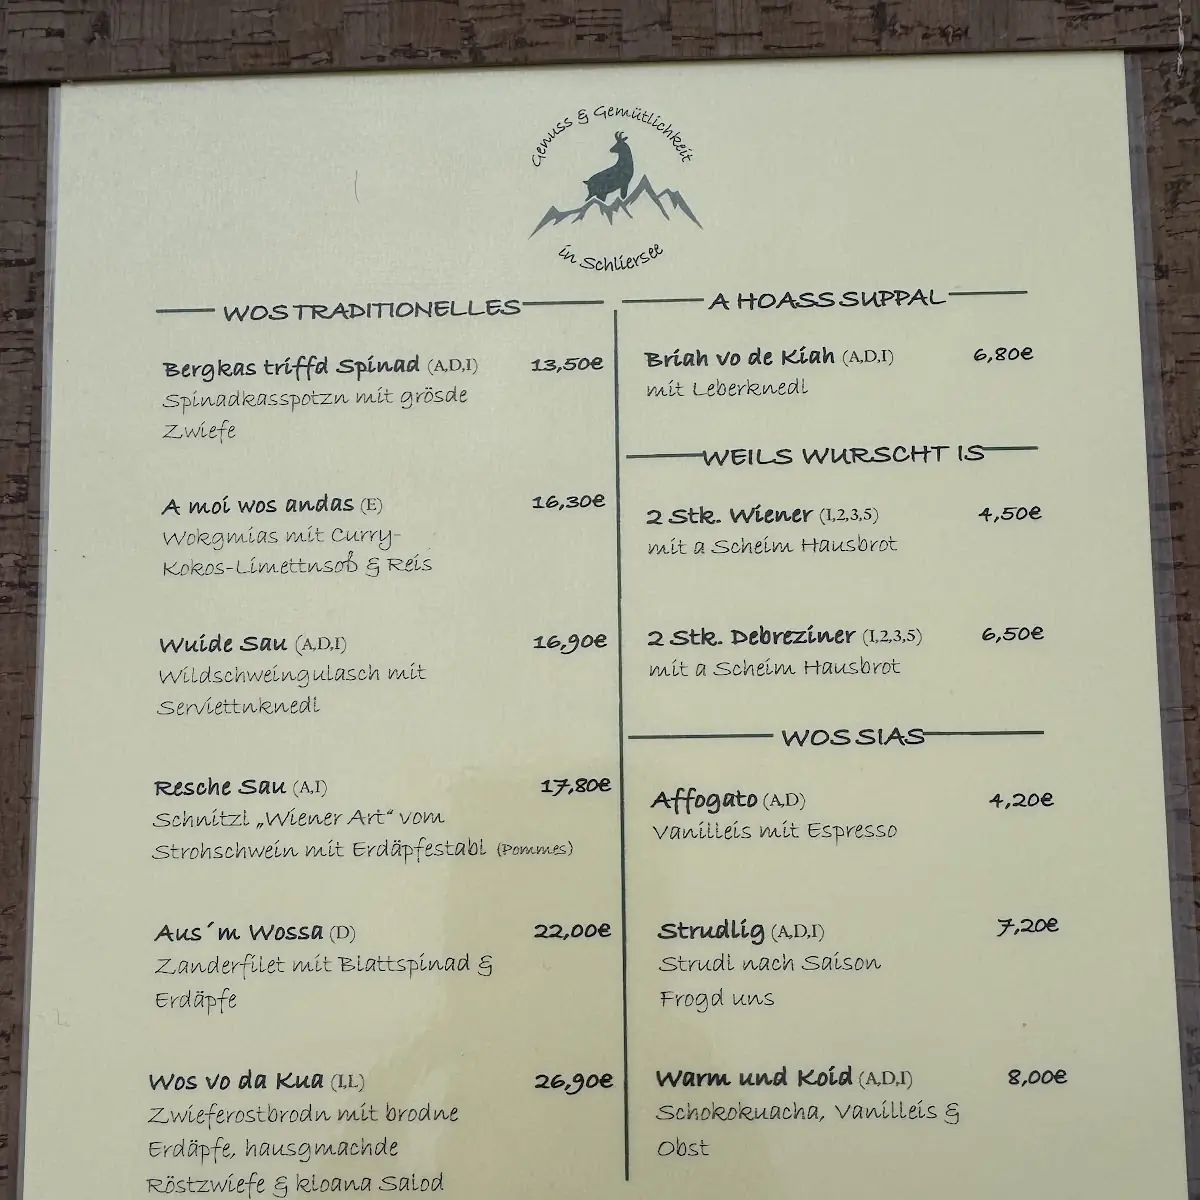 Genuss & Gemütlichkeit
in Schliersee
WOS TRADITIONELLES
Bergkas triffd Spinad (A,D,I) 13,50€
Spinadkasspotzn mit grösde
Zwiefe
A moi wos andas (E) 16,30€
Wokgmias mit Curry-
Kokos-Limettnsoß & Reis
Wuide Sau (A,D,I) 16,90€
Wildschweingulasch mit
Serviettnknedl
Resche Sau (A,I) 17,80€
Schnitzl „Wiener Art“ vom
Strohschwein mit Erdäpfestabl (Pommes)
Aus´m Wossa (D) 22,00€
Zanderfilet mit Blattspinad &
Erdäpfe
Wos vo da Kua (I,L) 26,90€
Zwieferostbrodn mit brodne
Erdäpfe, hausgmachde
Röstzwiefe & kloana Salod
A HOASS SUPPAL
Briah vo de Kiah (A,D,I) 6,80€
mit Leberknedl
WEILS WURSCHT IS
2 Stk. Wiener (I,2,3,5) 4,50€
mit a Scheim Hausbrot
2 Stk. Debreziner (I,2,3,5) 6,50€
mit a Scheim Hausbrot
WOS SIAS
Affogato (A,D) 4,20€
Vanilleis mit Espresso
Strudlig (A,D,I) 7,20€
Strudl nach Saison
Frogd uns
Warm und Koid (A,D,I) 8,00€
Schokokuacha, Vanilleis &
Obst